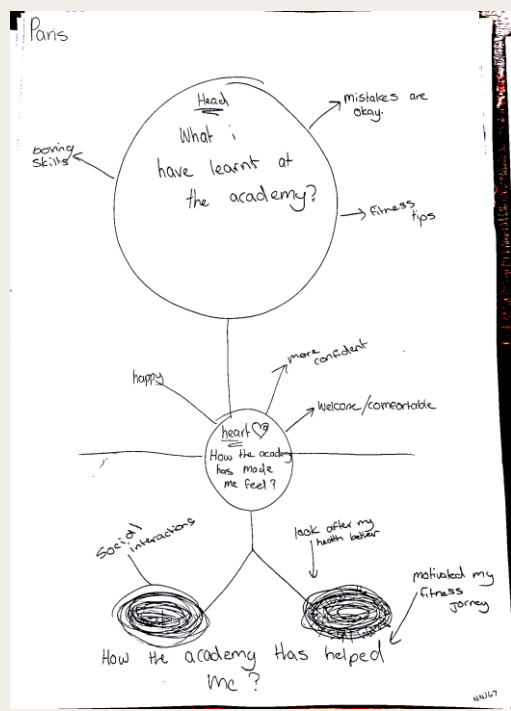 Paris
Head
What i
have learnt at
the academy?
mistakes are
okay.
boxing
skills
fitness
tips
happy
more
confident
Welcome/comfortable
heart
How the academy
has made
me feel?
Social
interactions
look after my
health better
motivated my
fitness
jorney
How the academy Has helped
me?
NNJ67